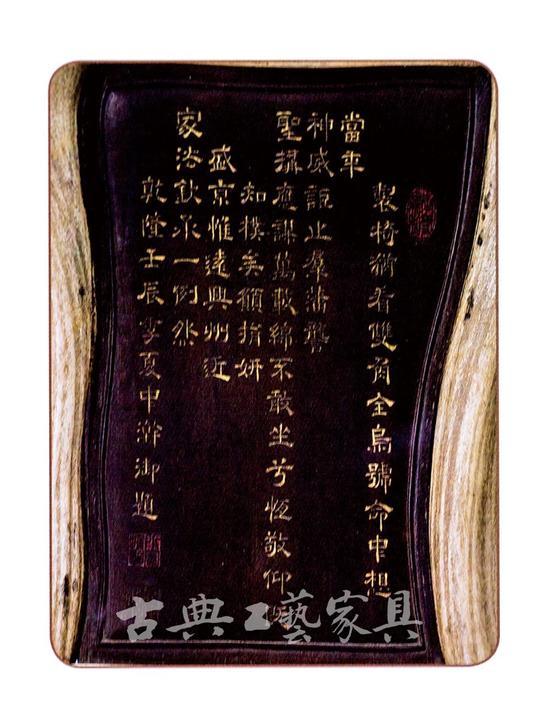 製椅猶看雙角全烏號命中想
當年
神威詎止羣藩讋
聖搆應謀萬載綿不敢坐兮恆敬仰
知樸矣願捐妍
盛京惟遠興州近
家法欽承一例然
乾隆壬辰季夏中澣御題
古典工藝家具